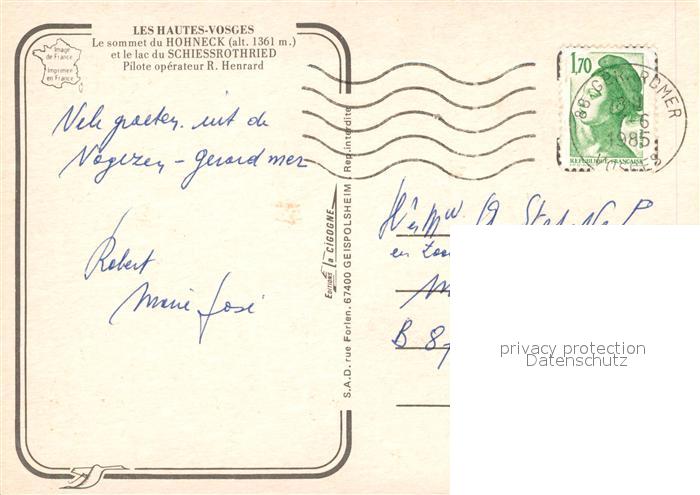 LES HAUTES-VOSGES
Le sommet du HOHNECK (alt. 1361 m.)
et le lac du SCHIESSROTHRIED
Pilote opérateur R. Henrard
Image
de France
Imprimée
en France
Vele groeten uit de
Vogezen - Gerardmer
Robert
Marie José
Editions la CIGOGNE
S.A.D. rue Forlen. 67400 GEISPOLSHEIM. Rep. interdite
1,70
REPUBLIQUE FRANÇAISE
88 GERARDMER
-6
1985
VOSGES
en
B 87
privacy protection
Datenschutz